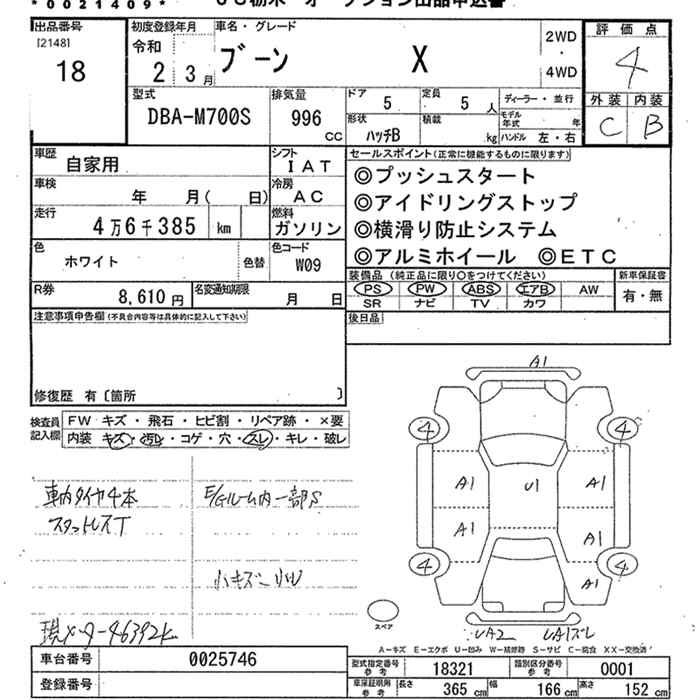 *0021409*
出品番号
[2148]
18
初度登録年月
令和
2 3月
車名・グレード
ブーン X
2WD
・
4WD
評価点
4
外装 内装
C B
型式
DBA-M700S
排気量
996
CC
ドア 5
定員 5 人
ディーラー・並行
形状 ハッチB
積載 kg
モデル年式 年
ハンドル 左・右
車歴
自家用
シフト
IAT
セールスポイント(正常に機能するものに限ります)
◎プッシュスタート
◎アイドリングストップ
◎横滑り防止システム
◎アルミホイール ◎ETC
車検
年 月( 日)
冷房
AC
走行
4万6千385 km
燃料
ガソリン
色
ホワイト
色替
色コード
W09
装備品(純正品に限り○をつけてください)
新車保証書
PS PW ABS エアB AW
有・無
SR ナビ TV カワ
R券
8,610円
名変通知期限
月 日
後日品
注意事項申告欄(不具合内容等は具体的に記入して下さい)
修復歴 有〔箇所 〕
検査員
記入欄
FW キズ・飛石・ヒビ割・リペア跡・×要
内装 キズ・汚レ・コゲ・穴・スレ・キレ・破レ
車内タイヤ4本
スタットレスT
E/Gルーム内一部S
現メーター46392k
A1
4 4
A1 U1 A1
A1 A1
4 4
A1
UA2 UA1ズレ
スペア
A-キズ E-エクボ U-凹み W-補修跡 S-サビ C-腐食 XX-交換済
車台番号
0025746
登録番号
型式指定番号
参考
18321
類別区分番号
参考
0001
車庫証明用
参考
長さ 365 cm
幅 166 cm
高さ 152 cm